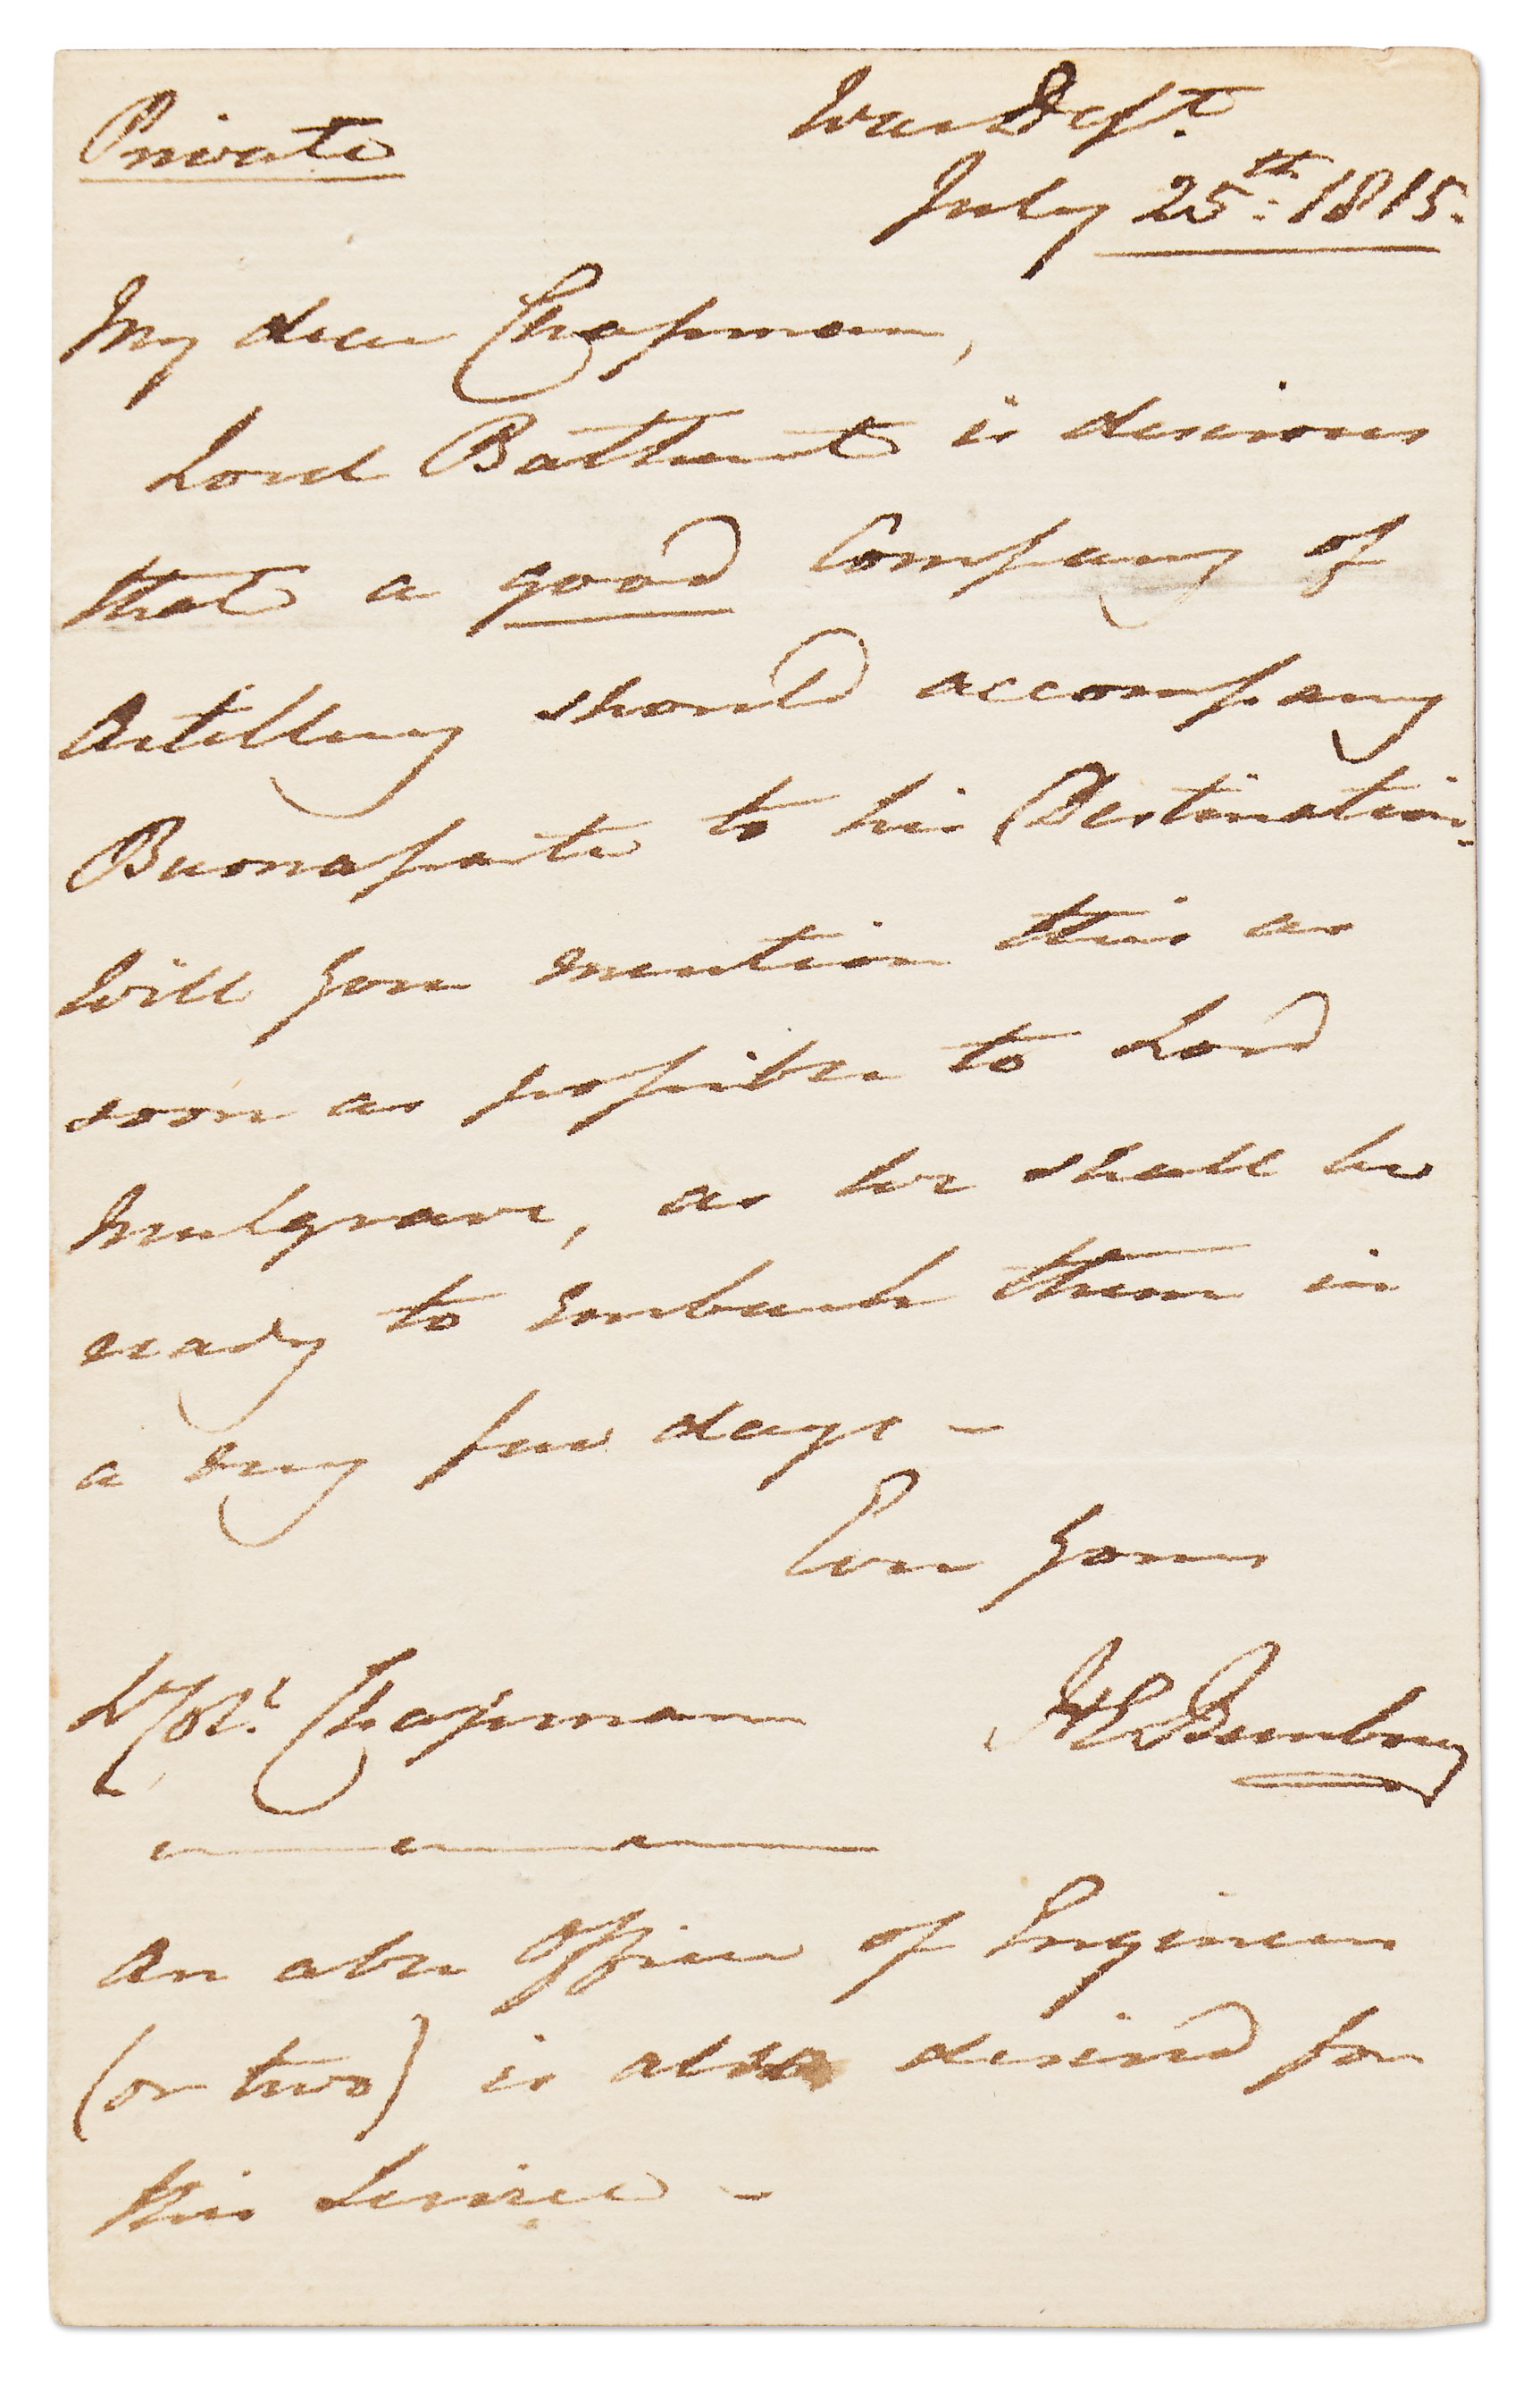 Private
War Dept.
July 25th: 1815.
My dear Chapman,
Lord Bathurst is desirous
that a good Company of
Artillery should accompany
Buonaparte to his Destination.
Will you mention this as
soon as possible to Lord
Mulgrave, as we shall be
ready to embark them in
a very few days -
Ever yours
Lt Col. Chapman
H E Bunbury
An able Officer of Engineers
(or two) is also desired for
this Service -